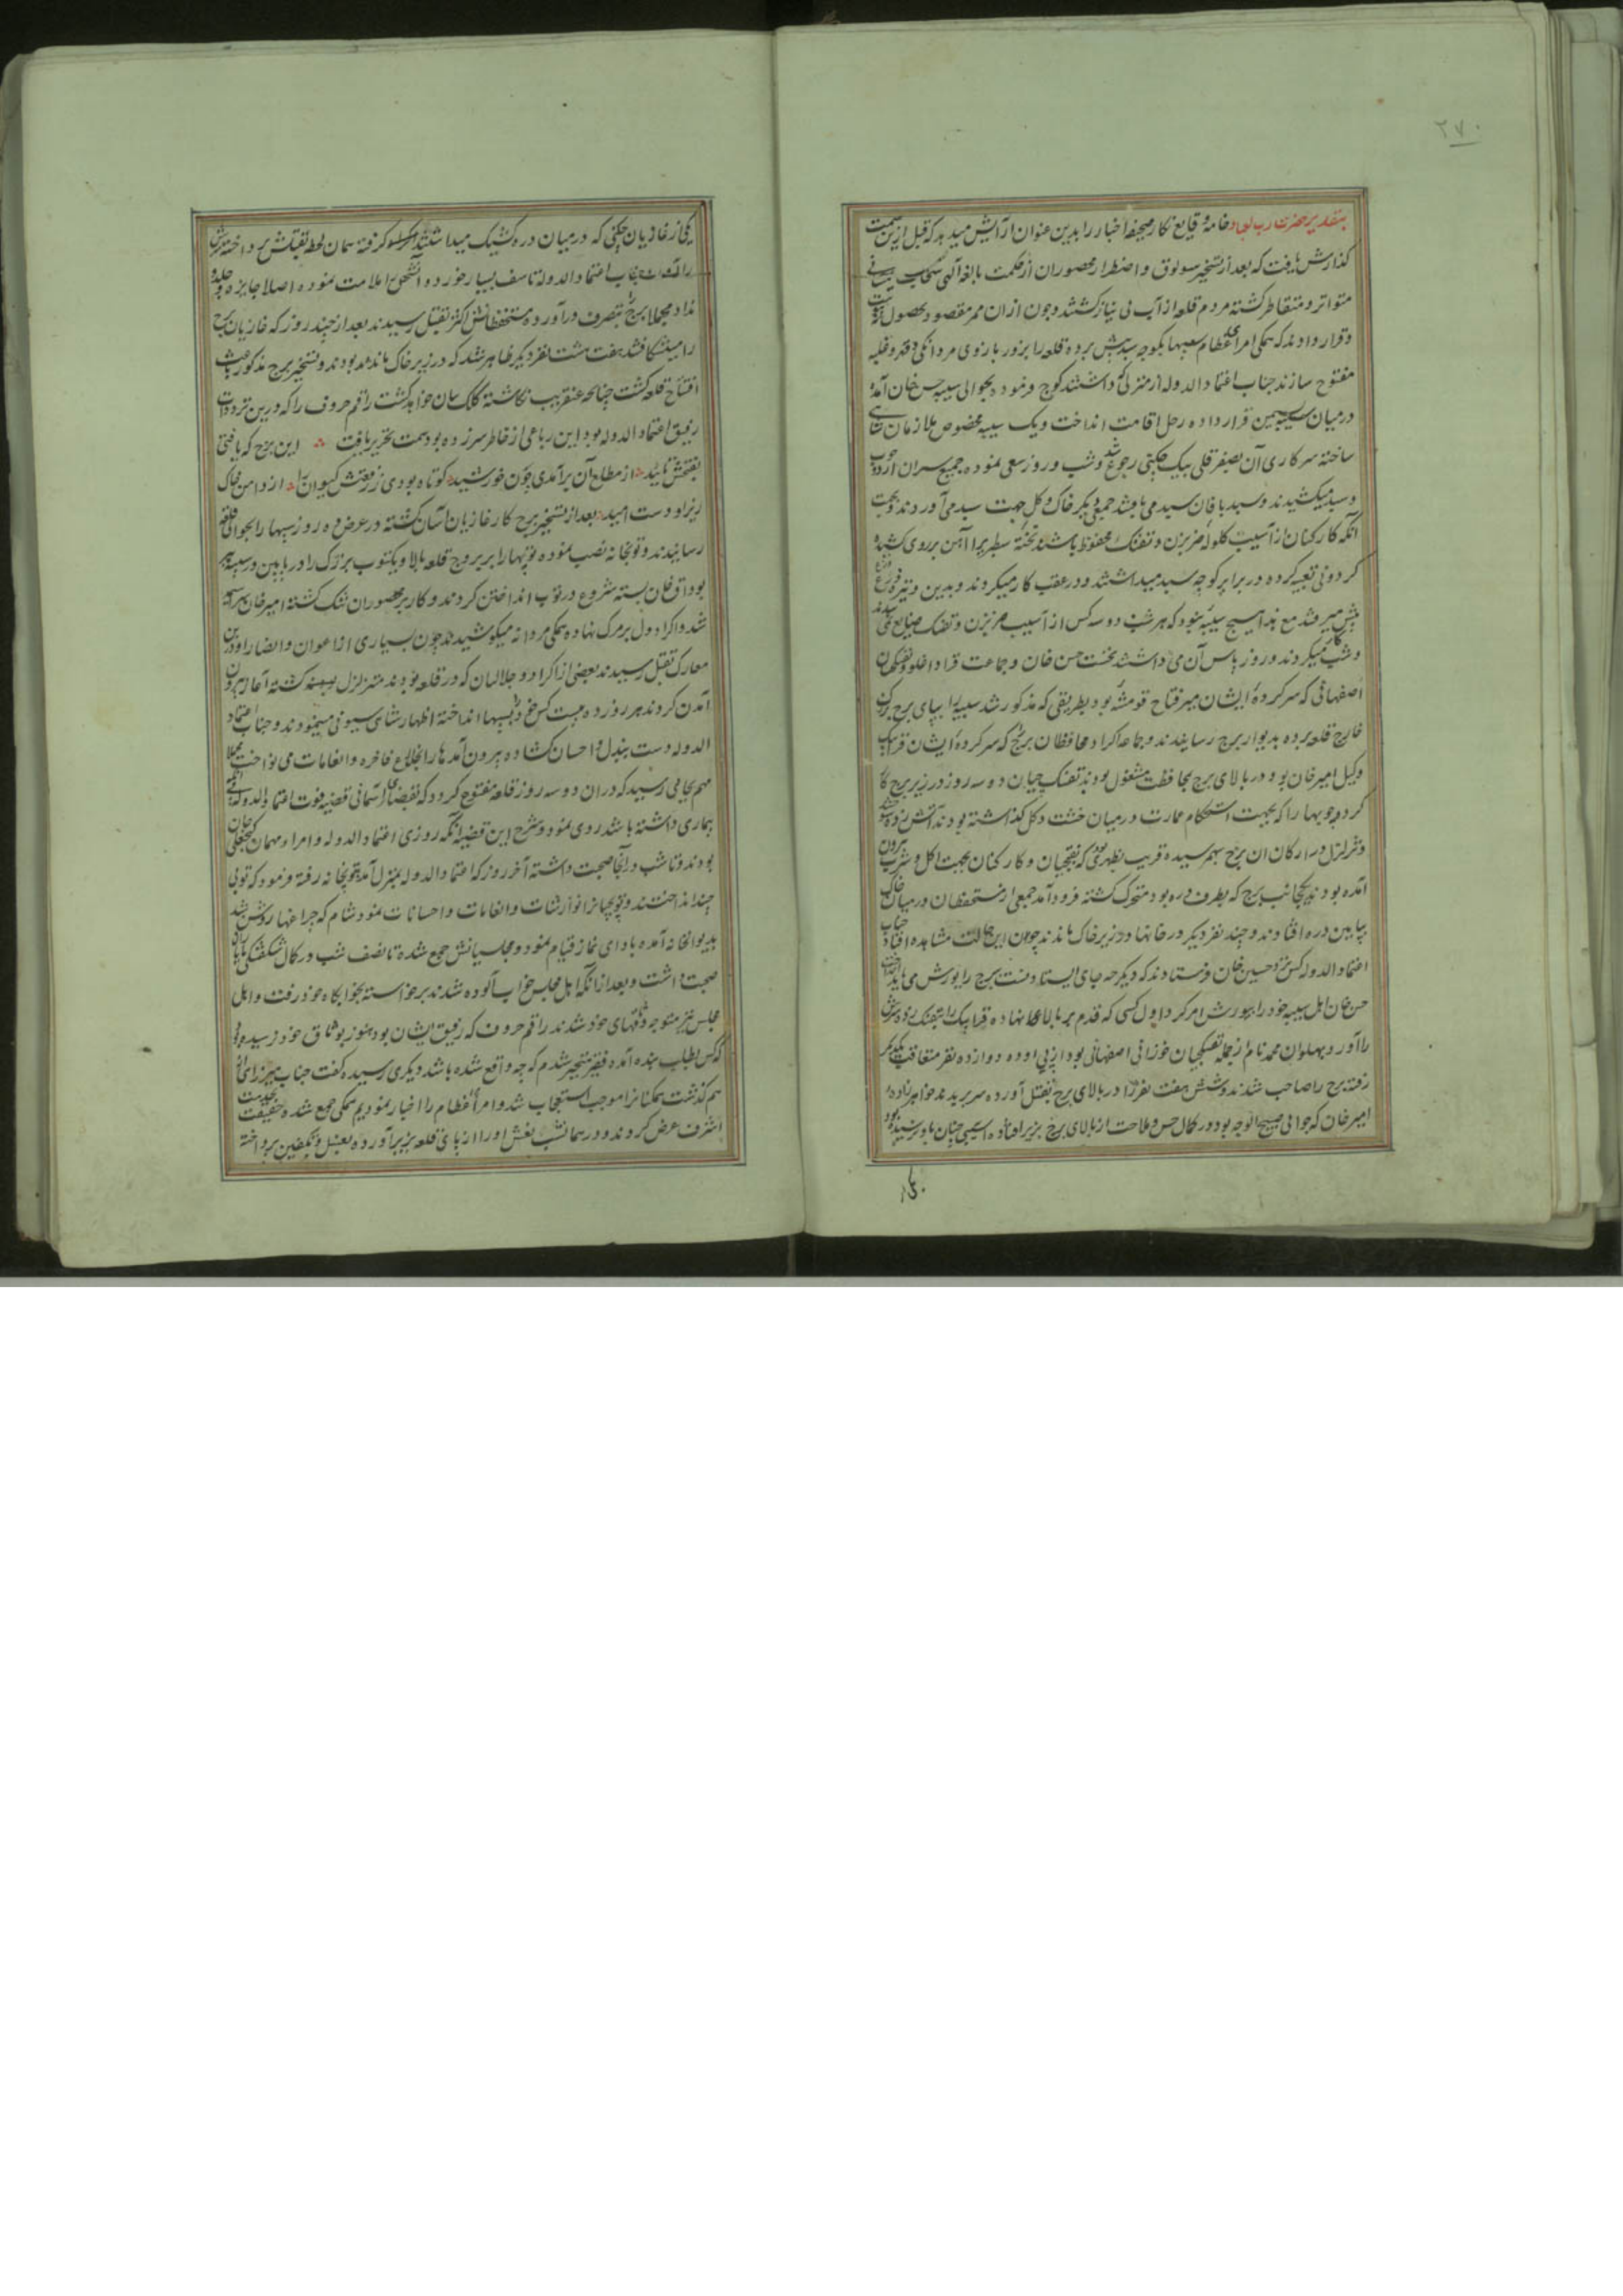 ۲۷۰
بتقدیر حضرت رب العباد خامه وقایع نکار صحیفه اخبار را بدین عنوان آرایش میدهد که قبل ازین سمت
کذارش یافت که بعد از تسخیر سولوق و اضطرار محصوران از حکمت بالغه آلهی سحاب نیسانی
متواتر و متقاطر کشته مردم قلعه از آب بی نیاز کشتند و چون از ان ممر مقصود بحصول
و قرار دادند که همکی امرای عظام سیبها بکوچه سبد پیش برده قلعه را بزور بازوی مردانکی و قهر و غلبه
مفتوح سازند جناب اعتماد الدوله از منزلی که داشتند کوچ فرموده بحوالی سیبه حسن خان آمده
درمیان سیبتین قرار داده رحل اقامت انداخت و یک سیبه مخصوص ملازمان شاهی
ساخته سرکاری آن بصفر قلی بیک چکنی رجوع شد و شب و روز سعی نموده جمیع سران اردو چوب
و سبد میکشیدند و سبد بافان سبد می بافتند و جمعی دیکر خاک و کل جهت سبد می آوردند و بجهت
آنکه کارکنان از آسیب کلوله ضربزن و تفنک محفوظ باشند تخته سطبر برا آهن بر روی کشیده
کردونی تعبیه کرده در برابر کوچه سبد میداشتند و در عقب کار میکردند و بدین وتیره
پیش میرفتند مع هذا هیچ سیبه نبود که هر شب دو سه کس از آسیب ضربزن و تفنک ضایع نمی شدند
و شب کار میکردند و روز پاس آن می داشتند نخست حسن خان و جماعت قراداغلو و تفنکچیان
اصفهانی که سرکرده ایشان میرفتاح قومشه بود بطریقی که مذکور شد سیبه را بپای برج
خارج قلعه برده بدیوار برج رسانیدند و جماعه اکراد محافظان برج که سرکرده ایشان قرابیک
وکیل امیرخان بود در بالای برج بمحافظت مشغول بودند تفنکچیان دو سه روز در زیر برج کار
کرده چوبها را که بجهت استحکام عمارت درمیان خشت و کل کذاشته بودند آتش زده
و تزلزل در ارکان ان برج بهم رسیده قریب بظهری که نقبچیان و کارکنان بجهت اکل و شرب بیرون
آمده بودند یکجانب برج که بطرف دره بود متحرک کشته فرود آمد جمعی از مستحفظان درمیان خاک
بپایین دره افتادند و چند نفر دیکر در خانها در زیر خاک ماندند چون این حالت مشاهده افتاد جناب
اعتماد الدوله کس نزد حسین خان فرستادند که دیکر چه جای ایستادنست برج را یورش می باید
حسن خان اهل سیبه خود را بیورش امر کرد اول کسی که قدم بر بالا نهاده قرابیک را بتفنک زد و سرش
را آورد پهلوان محمد نام از جمله تفنکچیان خوزانی اصفهانی بود از پی او ده دوازده نفر متعاقب یکدیکر
رفته برج را صاحب شدند و شش هفت نفر را در بالای برج بقتل آورده سر بریدند خواهرزاده
امیرخان که جوانی صبیح الوجه بود و در کمال حسن و ملاحت از بالای برج بزیر افتاده آسیبی چنان باو نرسیده بود
یکی از غازیان چکنی که درمیان دره کشیک میداشتند کرفته همان لحظه بقتلش پرداخته سرش
را آورد جناب اعتماد الدوله تاسف بسیار خورد و آنشخص را ملامت نموده اصلا جایزه و جلدو
نداد مجملا برج بتصرف درآورده مستحفظانش اکثر بقتل رسیدند بعد از چند روز که غازیان برج
را میشکافتند هفت هشت نفر دیکر ظاهر شد که در زیر خاک مانده بودند و تسخیر برج مذکور باعث
افتتاح قلعه کشت چنانچه عنقریب نکاشته کلک بیان خواهد کشت راقم حروف را که درین تردد
رفیق اعتماد الدوله بود این رباعی از خاطر سرزده بود سمت تحریر یافت این برج که یافتی
بفتحش تایید از مطلع آن برآمدی چون خورشید کوتاه بودی ز رفعتش کیوان را از دامن خاک
زیر او دست امید بعد از تسخیر برج کار غازیان آسان کشته در عرض ده روز سیبها را بحوالی قلعه
رسانیدند و توبخانه نصب نموده توپها را بر بروج قلعه بالا و یکتوب بزرک را در پایین و سیبه پیر
بوداق خان بسته شروع در توب انداختن کردند و کار بر محصوران تنک کشته امیرخان سراسیمه
شد و اکراد دل بر مرک نهاده همکی مردانه میکوشیدند چون بسیاری از اعوان و انصار او درین
معارک بقتل رسیدند بعضی از اکراد و جلالیان که در قلعه بودند متزلزل کشته آغاز بیرون
آمدن کردند هر روز ده بیست کس خود را بسیبها انداخته اظهار شاهی سیونی مینمودند و جناب اعتماد
الدوله دست ببذل و احسان کشاده بیرون آمدها را بخلاع فاخره و انعامات می نواخت مجملا
مهم بجایی رسید که در ان دو سه روز قلعه مفتوح کردد که بقضای آسمانی قضیه فوت اعتماد الدوله بی آنکه
بیماری داشته باشد روی نمود و شرح این قضیه آنکه روزی اعتماد الدوله و امرا مهمان کنجعلی خان
بودند و تا شب در آنجا صحبت داشته آخر روز که اعتماد الدوله بمنزل آمد بتوبخانه رفته فرمود که توبی
چند انداختند و توبچیان را نوازشات و انعامات و احسانات نمود شام که چراغها روشن شد
بدیوانخانه آمده بادای نماز قیام نمود و مجلسیانش جمع شده تا نصف شب در کمال شکفتکی با یاران
صحبت داشت و بعد از آنکه اهل مجلس خواب آلوده شدند برخواسته بخوابکاه خود رفت و اهل
مجلس نیز متوجه خانهای خود شدند راقم حروف که رفیق ایشان بود هنوز بوثاق خود نرسیده بود
که کس بطلب بنده آمده فقیر متحیر شدم که چه واقع شده باشد دیکری رسیده کفت جناب میرزایی
هم کذشت همکنانرا موجب استعجاب شد و امرا عظام را اخبار نمودیم همکی جمع شده حقیقت بخدمت
اشرف عرض کردند و در همانشب نعش او را از پای قلعه بزیر آورده بغسل و تکفین پرداخته